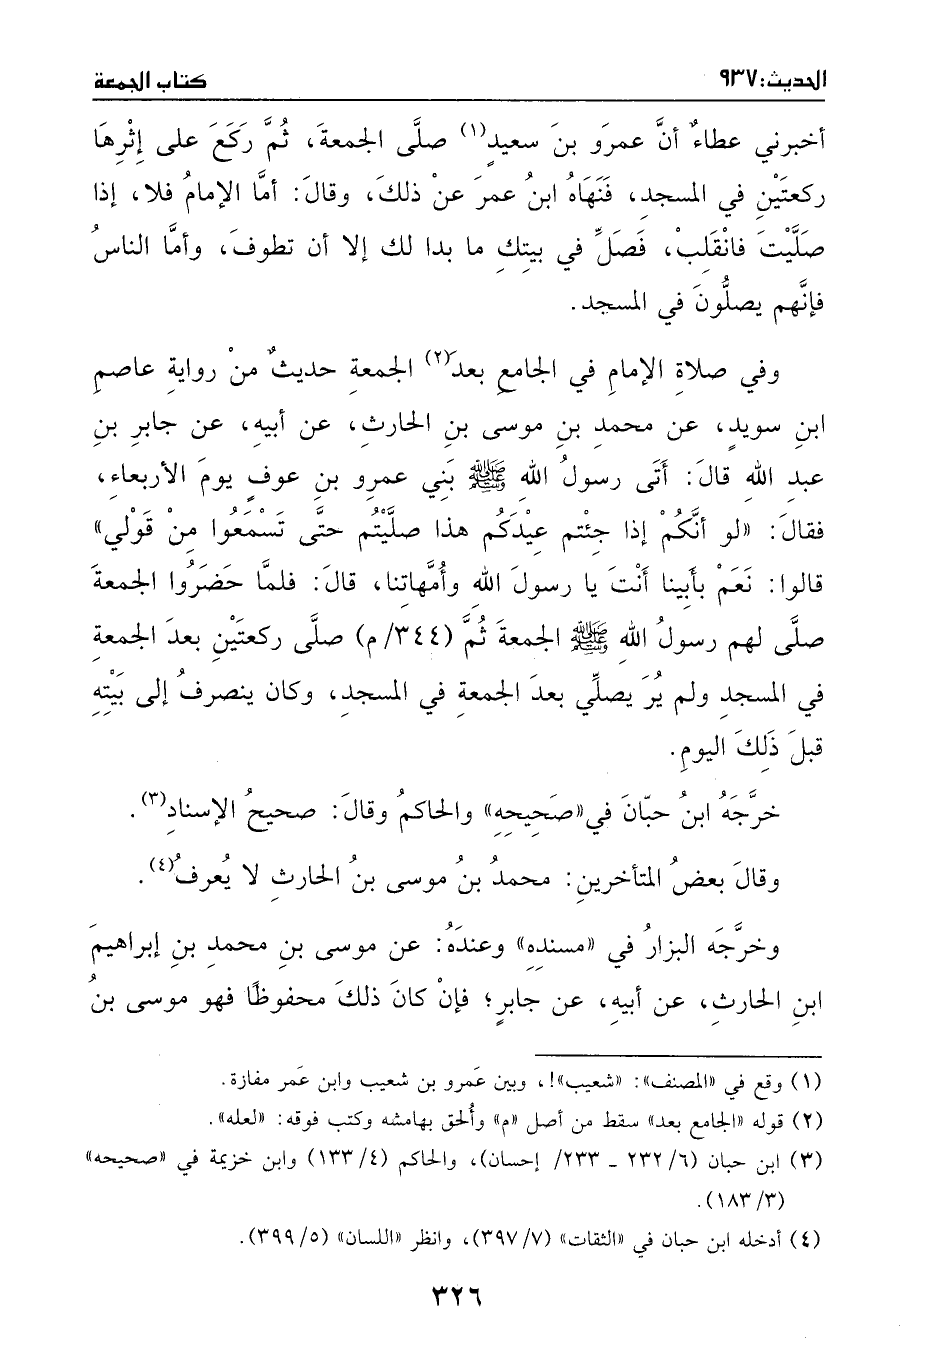 الحديث: ٩٣٧
كتاب الجمعة
أخبرني عطاءٌ أنَّ عمرَو بنَ سعيدٍ(١) صلَّى الجمعةَ، ثُمَّ رَكَعَ على إِثْرِهَا
ركعتَيْنِ في المسجدِ، فَنَهَاهُ ابنُ عمرَ عنْ ذلكَ، وقالَ: أمَّا الإمامُ فلا، إذا
صَلَّيْتَ فانْقَلِبْ، فَصَلِّ في بيتِكِ ما بدا لك إلا أن تطوفَ، وأمَّا الناسُ
فإنَّهم يصلُّونَ في المسجدِ.
وفي صلاةِ الإمامِ في الجامعِ بعدَ(٢) الجمعةِ حديثٌ منْ روايةِ عاصمِ
ابنِ سويدٍ، عن محمدِ بنِ موسى بنِ الحارثِ، عن أبيهِ، عن جابرِ بنِ
عبدِ اللهِ قالَ: أَتَى رسولُ اللهِ ﷺ بَنِي عمرِو بنِ عوفٍ يومَ الأربعاءِ،
فقالَ: «لو أنَّكُمْ إذا جئتم عِيْدَكُم هذا صلَّيْتُم حتَّى تَسْمَعُوا مِنْ قَوْلي»
قالوا: نَعَمْ بأَبينا أَنْتَ يا رسولَ اللهِ وأُمَّهاتنا، قالَ: فلمَّا حَضَرُوا الجمعةَ
صلَّى لهم رسولُ اللهِ ﷺ الجمعةَ ثُمَّ (٣٤٤/م) صلَّى ركعتَيْنِ بعدَ الجمعةِ
في المسجدِ ولم يُرَ يصلِّي بعدَ الجمعةِ في المسجدِ، وكان ينصرفُ إلى بَيْتِهِ
قبلَ ذَلِكَ اليومِ.
خرَّجَهُ ابنُ حبّانَ في«صَحِيحِهِ» والحاكمُ وقالَ: صحيحُ الإسنادِ(٣).
وقالَ بعضُ المتأخرينِ: محمدُ بنُ موسى بنُ الحارثِ لا يُعرفُ(٤).
وخرَّجَه البزارُ في «مسندِهِ» وعندَهُ: عن موسى بنِ محمدِ بنِ إبراهيمَ
ابنِ الحارثِ، عن أبيهِ، عن جابرٍ؛ فإنْ كانَ ذلكَ محفوظًا فهو موسى بنُ
(١) وقع في «المصنف»: «شعيب»!، وبين عَمرو بن شعيب وابن عَمر مفازة.
(٢) قوله «الجامع بعد» سقط من أصل «م» وأُلحق بهامشه وكتب فوقه: «لعله».
(٣) ابن حبان (٦/ ٢٣٢ ـ ٢٣٣/ إحسان)، والحاكم (٤/ ١٣٣) وابن خزيمة في «صحيحه»
(٣/ ١٨٣).
(٤) أدخله ابن حبان في «الثقات» (٧/ ٣٩٧)، وانظر «اللسان» (٥/ ٣٩٩).
٣٢٦